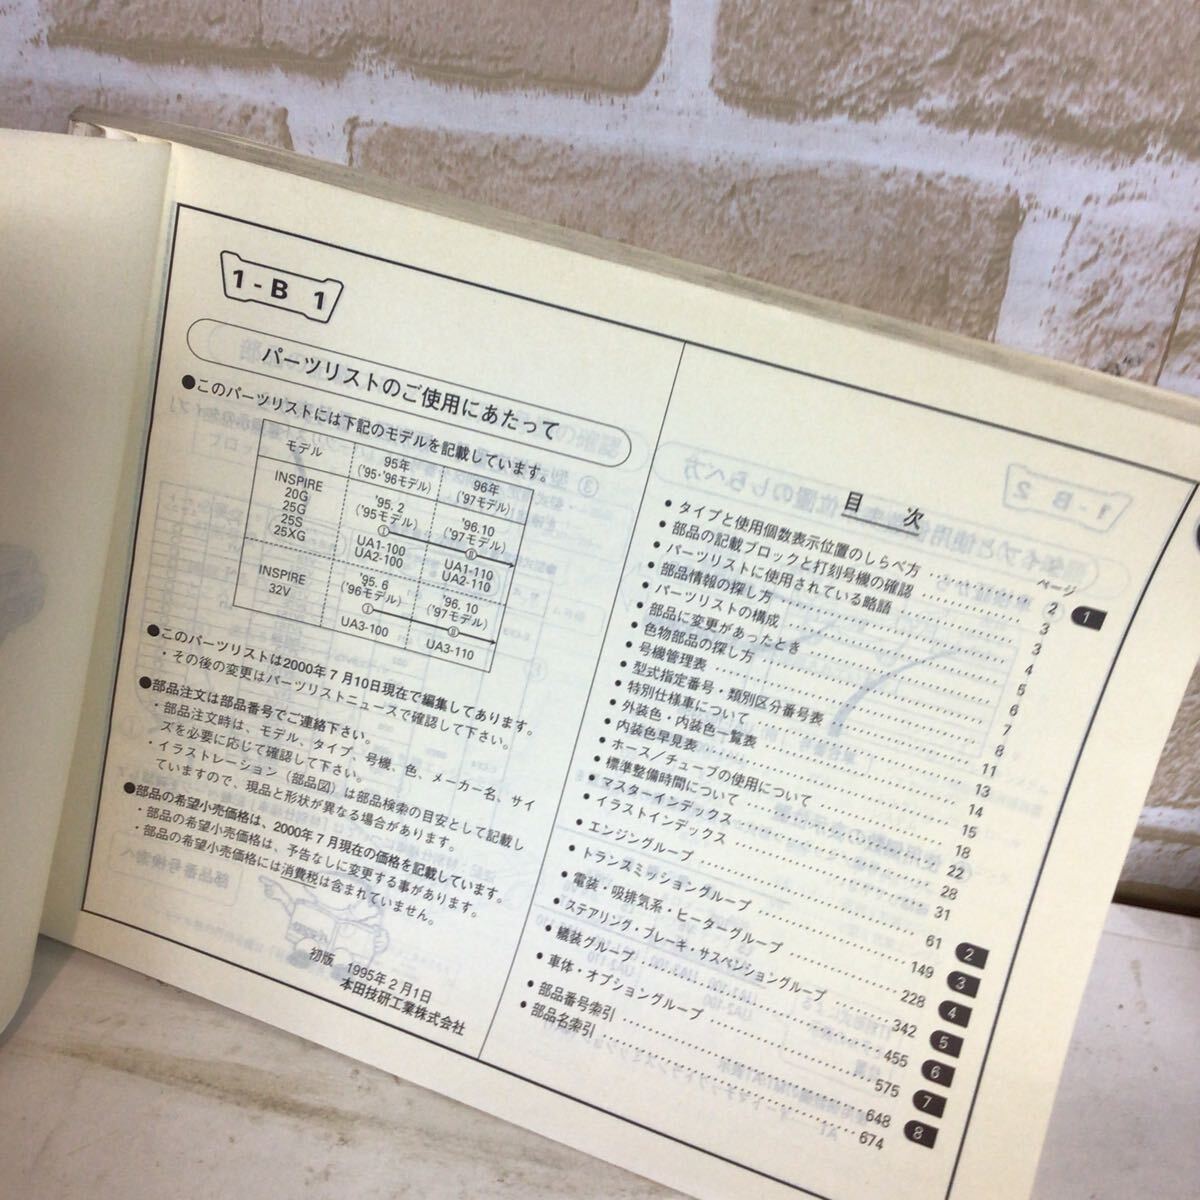 1-B 1
パーツリストのご使用にあたって
●このパーツリストには下記のモデルを記載しています。
モデル 95年 ('95・'96モデル) 96年 ('97モデル)
INSPIRE 20G 25G 25S 25XG '95.2 ('95モデル) Ⅰ UA1-100 UA2-100 '96.10 ('97モデル) Ⅱ UA1-110 UA2-110
INSPIRE 32V '95.6 ('96モデル) Ⅰ UA3-100 '96.10 ('97モデル) Ⅱ UA3-110
●このパーツリストは2000年7月10日現在で編集してあります。
・その後の変更はパーツリストニュースで確認して下さい。
●部品注文は部品番号でご連絡下さい。
・部品注文時は、モデル、タイプ、号機、色、メーカー名、サイ
ズを必要に応じて確認して下さい。
・イラストレーション（部品図）は部品検索の目安として記載し
ていますので、現品と形状が異なる場合があります。
●部品の希望小売価格は、2000年7月現在の価格を記載しています。
・部品の希望小売価格は、予告なしに変更する事があります。
・部品の希望小売価格には消費税は含まれていません。
初版 1995年2月1日
本田技研工業株式会社
目次
ページ
●タイプと使用個数表示位置のしらべ方 2 1
●部品の記載ブロックと打刻号機の確認 3
●パーツリストに使用されている略語 3
●部品情報の探し方 4
●パーツリストの構成 5
●部品に変更があったとき 6
●色物部品の探し方 7
●号機管理表 8
●型式指定番号・類別区分番号表 11
●特別仕様車について 13
●外装色・内装色一覧表 14
●内装色早見表 15
●ホース/チューブの使用について 18
●標準整備時間について 22
●マスターインデックス 28
●イラストインデックス 31
●エンジングループ 61 2
●トランスミッショングループ 149 3
●電装・吸排気系・ヒーターグループ 228 4
●ステアリング・ブレーキ・サスペンショングループ 342 5
●艤装グループ 455 6
●車体・オプショングループ 575 7
●部品番号索引 648 8
●部品名索引 674